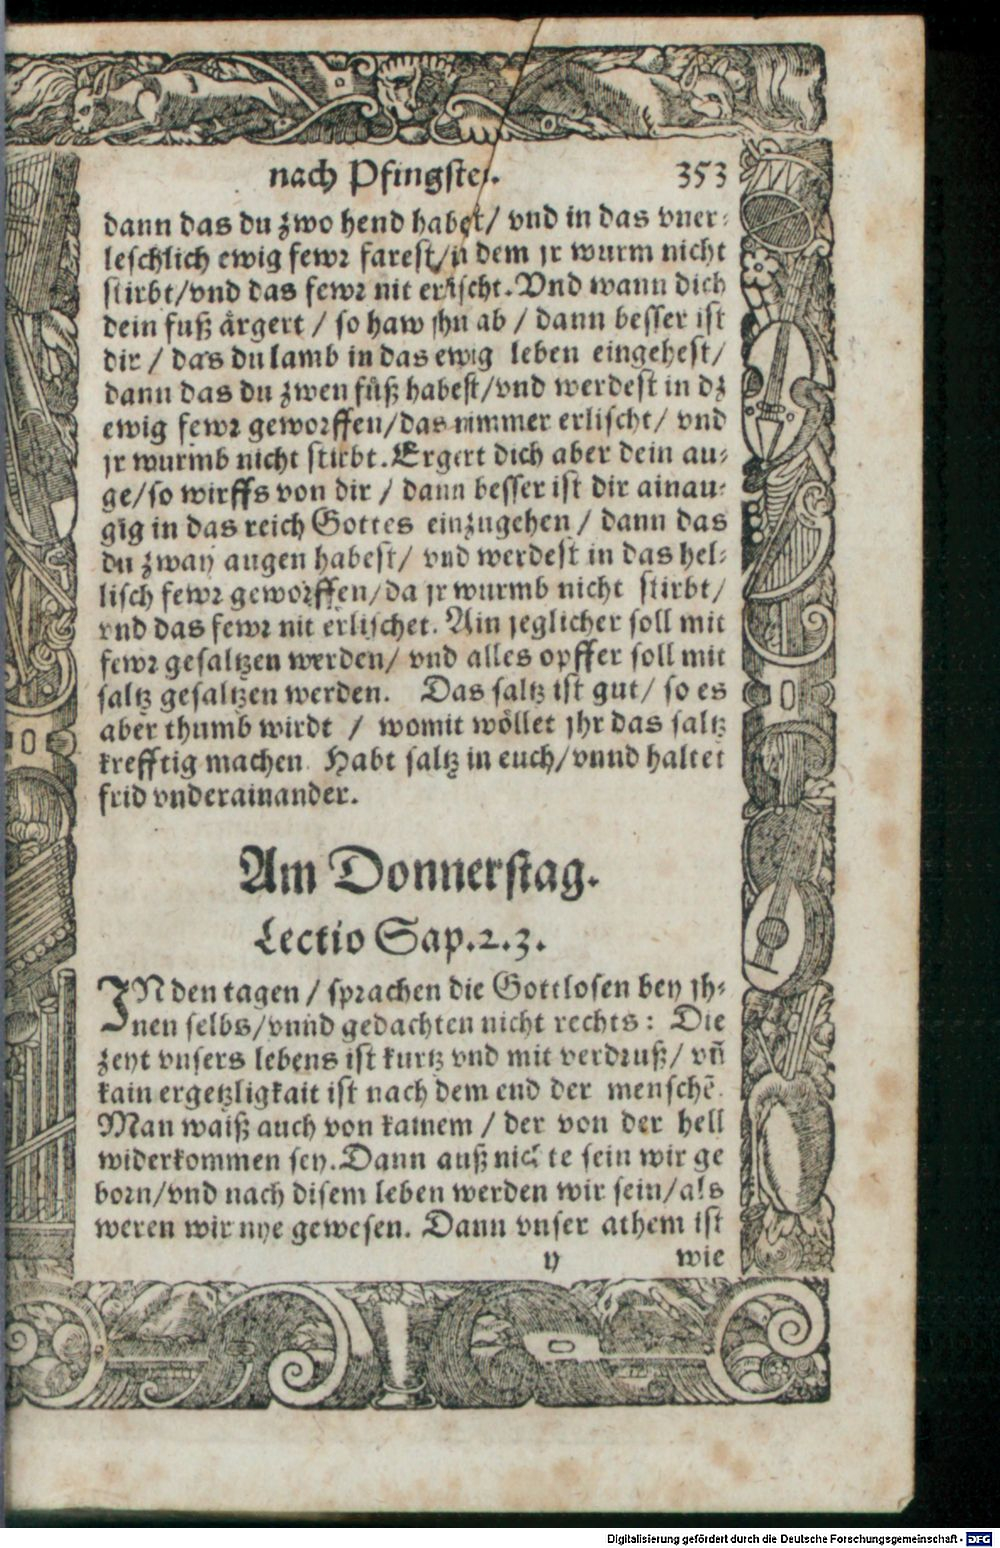 nach Pfingsten. 353
dann das du zwo hend habest/ vnd in das vner⸗
leschlich ewig fewr farest/in dem jr wurm nicht
stirbt/vnd das fewr nit erlischt. Vnd wann dich
dein fuß ärgert / so haw jhn ab / dann besser ist
dir / das du lamb in das ewig leben eingehest/
dann das du zwen füß habest/vnd werdest in dz
ewig fewr geworffen/das nimmer erlischt/ vnd
jr wurmb nicht stirbt. Ergert dich aber dein au⸗
ge/so wirffs von dir / dann besser ist dir ainau⸗
gig in das reich Gottes einzugehen / dann das
du zway augen habest/ vnd werdest in das hel⸗
lisch fewr geworffen/da jr wurmb nicht stirbt/
vnd das fewr nit erlischet. Ain jeglicher soll mit
fewr gesaltzen werden/ vnd alles opffer soll mit
saltz gesaltzen werden. Das saltz ist gut/ so es
aber thumb wirdt / womit wöllet jhr das saltz
krefftig machen Habt saltz in euch/vnnd haltet
frid vnderainander.
Am Donnerstag.
Lectio Sap.2.3.
JN den tagen / sprachen die Gottlosen bey jh⸗
nen selbs/vnnd gedachten nicht rechts: Die
zeyt vnsers lebens ist kurtz vnd mit verdruß/ vñ
kain ergetzligkait ist nach dem end der menschẽ.
Man waiß auch von kainem / der von der hell
widerkommen sey. Dann auß nichte sein wir ge
born/vnd nach disem leben werden wir sein/als
weren wir nye gewesen. Dann vnser athem ist
y wie
Digitalisierung gefördert durch die Deutsche Forschungsgemeinschaft - DFG